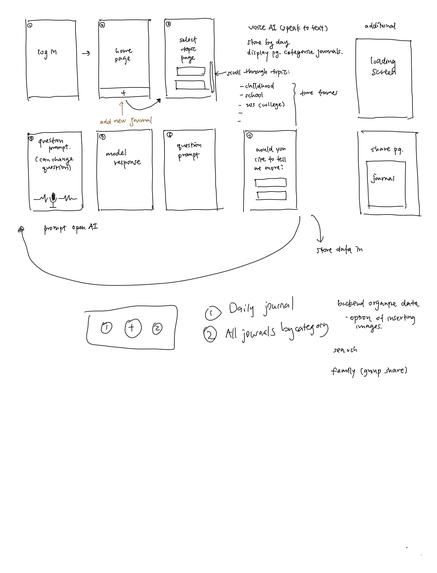 ①
log in
②
home
page
+
add new journal
③
select
topic
page
voice AI (speak to text)
store by day
display pg. categorise journals.
scroll through topic:
- childhood
- school
- (college)
-
-
time frames
additional
loading
screen
question
prompt.
(can change
question)
model
response
question
prompt
would you
like to tell
us more?
share pg.
journal
prompt open AI
store data in
① + ②
① Daily journal
② All journals by category
backend organise data
- option of inserting
images.
search
family (group share)